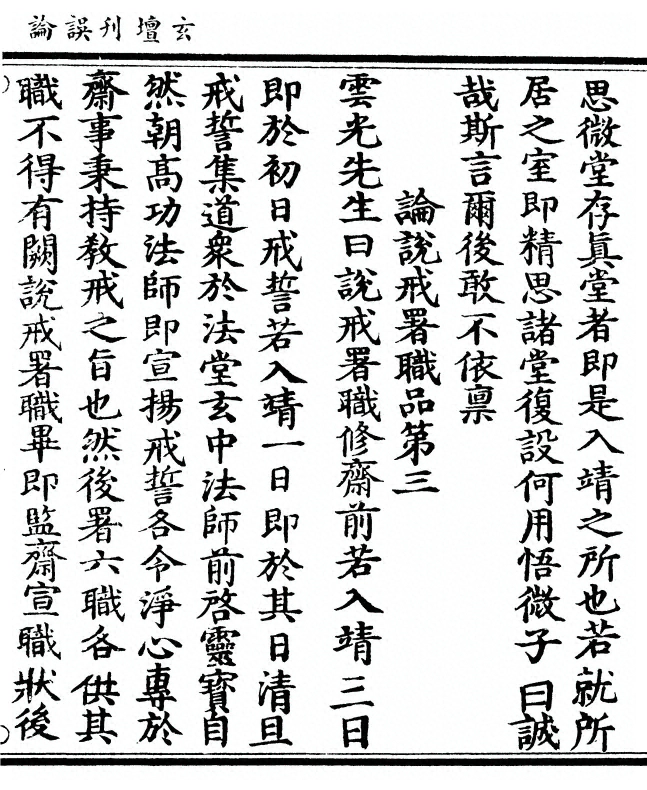 玄壇刊誤論
思微堂存眞堂者即是入靖之所也若就所
居之室即精思諸堂復設何用悟微子曰誠
哉斯言爾後敢不依禀
論說戒署職品第三
雲光先生曰說戒署職修齋前若入靖三日
即於初日戒誓若入靖一日即於其日清旦
戒誓集道衆於法堂玄中法師前啓靈寶自
然朝高功法師即宣揚戒誓各令淨心專於
齋事秉持敎戒之旨也然後署六職各供其
職不得有闕說戒署職畢即監齋宣職狀後